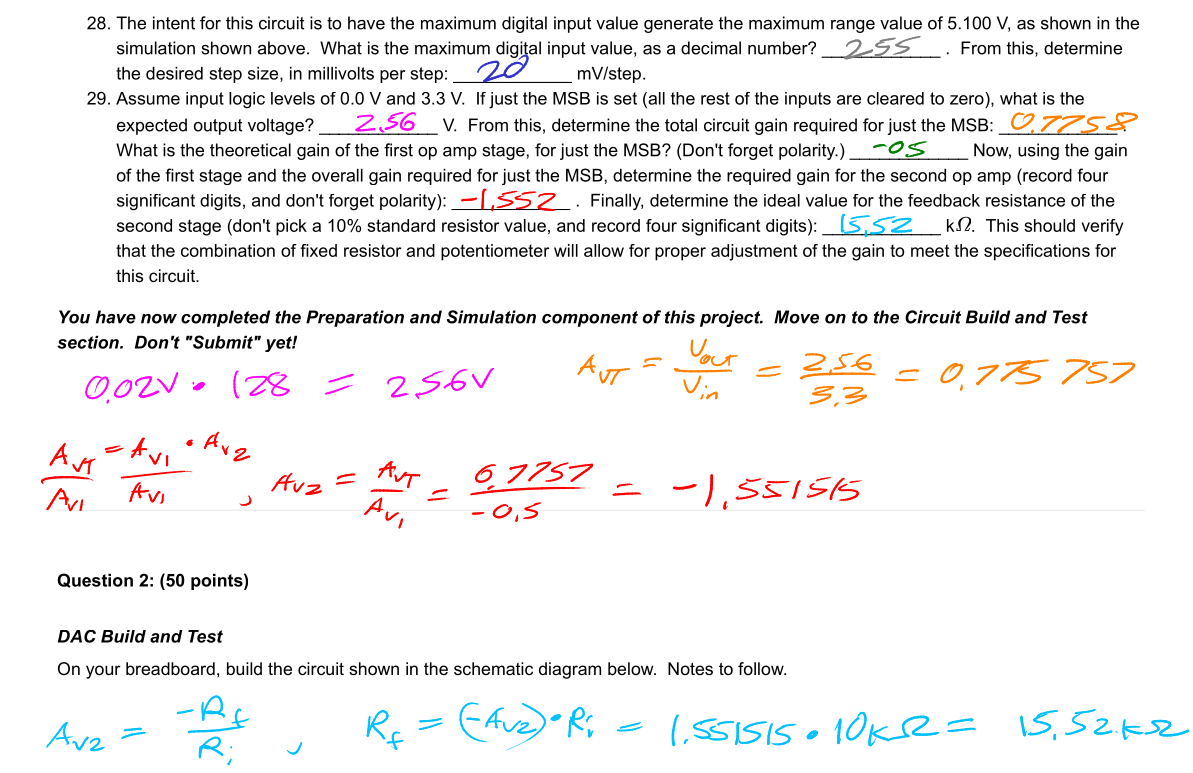 28. The intent for this circuit is to have the maximum digital input value generate the maximum range value of 5.100 V, as shown in the
simulation shown above. What is the maximum digital input value, as a decimal number? 255 . From this, determine
the desired step size, in millivolts per step: 20 mV/step.
29. Assume input logic levels of 0.0 V and 3.3 V. If just the MSB is set (all the rest of the inputs are cleared to zero), what is the
expected output voltage? 2.56 V. From this, determine the total circuit gain required for just the MSB: 0.7758.
What is the theoretical gain of the first op amp stage, for just the MSB? (Don't forget polarity.) -05 Now, using the gain
of the first stage and the overall gain required for just the MSB, determine the required gain for the second op amp (record four
significant digits, and don't forget polarity): -1,552 . Finally, determine the ideal value for the feedback resistance of the
second stage (don't pick a 10% standard resistor value, and record four significant digits): 15,52 kΩ. This should verify
that the combination of fixed resistor and potentiometer will allow for proper adjustment of the gain to meet the specifications for
this circuit.
You have now completed the Preparation and Simulation component of this project. Move on to the Circuit Build and Test
section. Don't "Submit" yet!
0.02V • 128 = 2.56V
AVT = Vout / Vin = 2.56 / 3.3 = 0.775 757
AVT / AV1 = AV1 • AV2 / AV1 , AV2 = AVT / AV1 = 0,7757 / -0,5 = -1,551515
Question 2: (50 points)
DAC Build and Test
On your breadboard, build the circuit shown in the schematic diagram below. Notes to follow.
AV2 = -Rf / Ri , Rf = (-AV2) • Ri = 1.551515 • 10kΩ = 15,52 kΩ